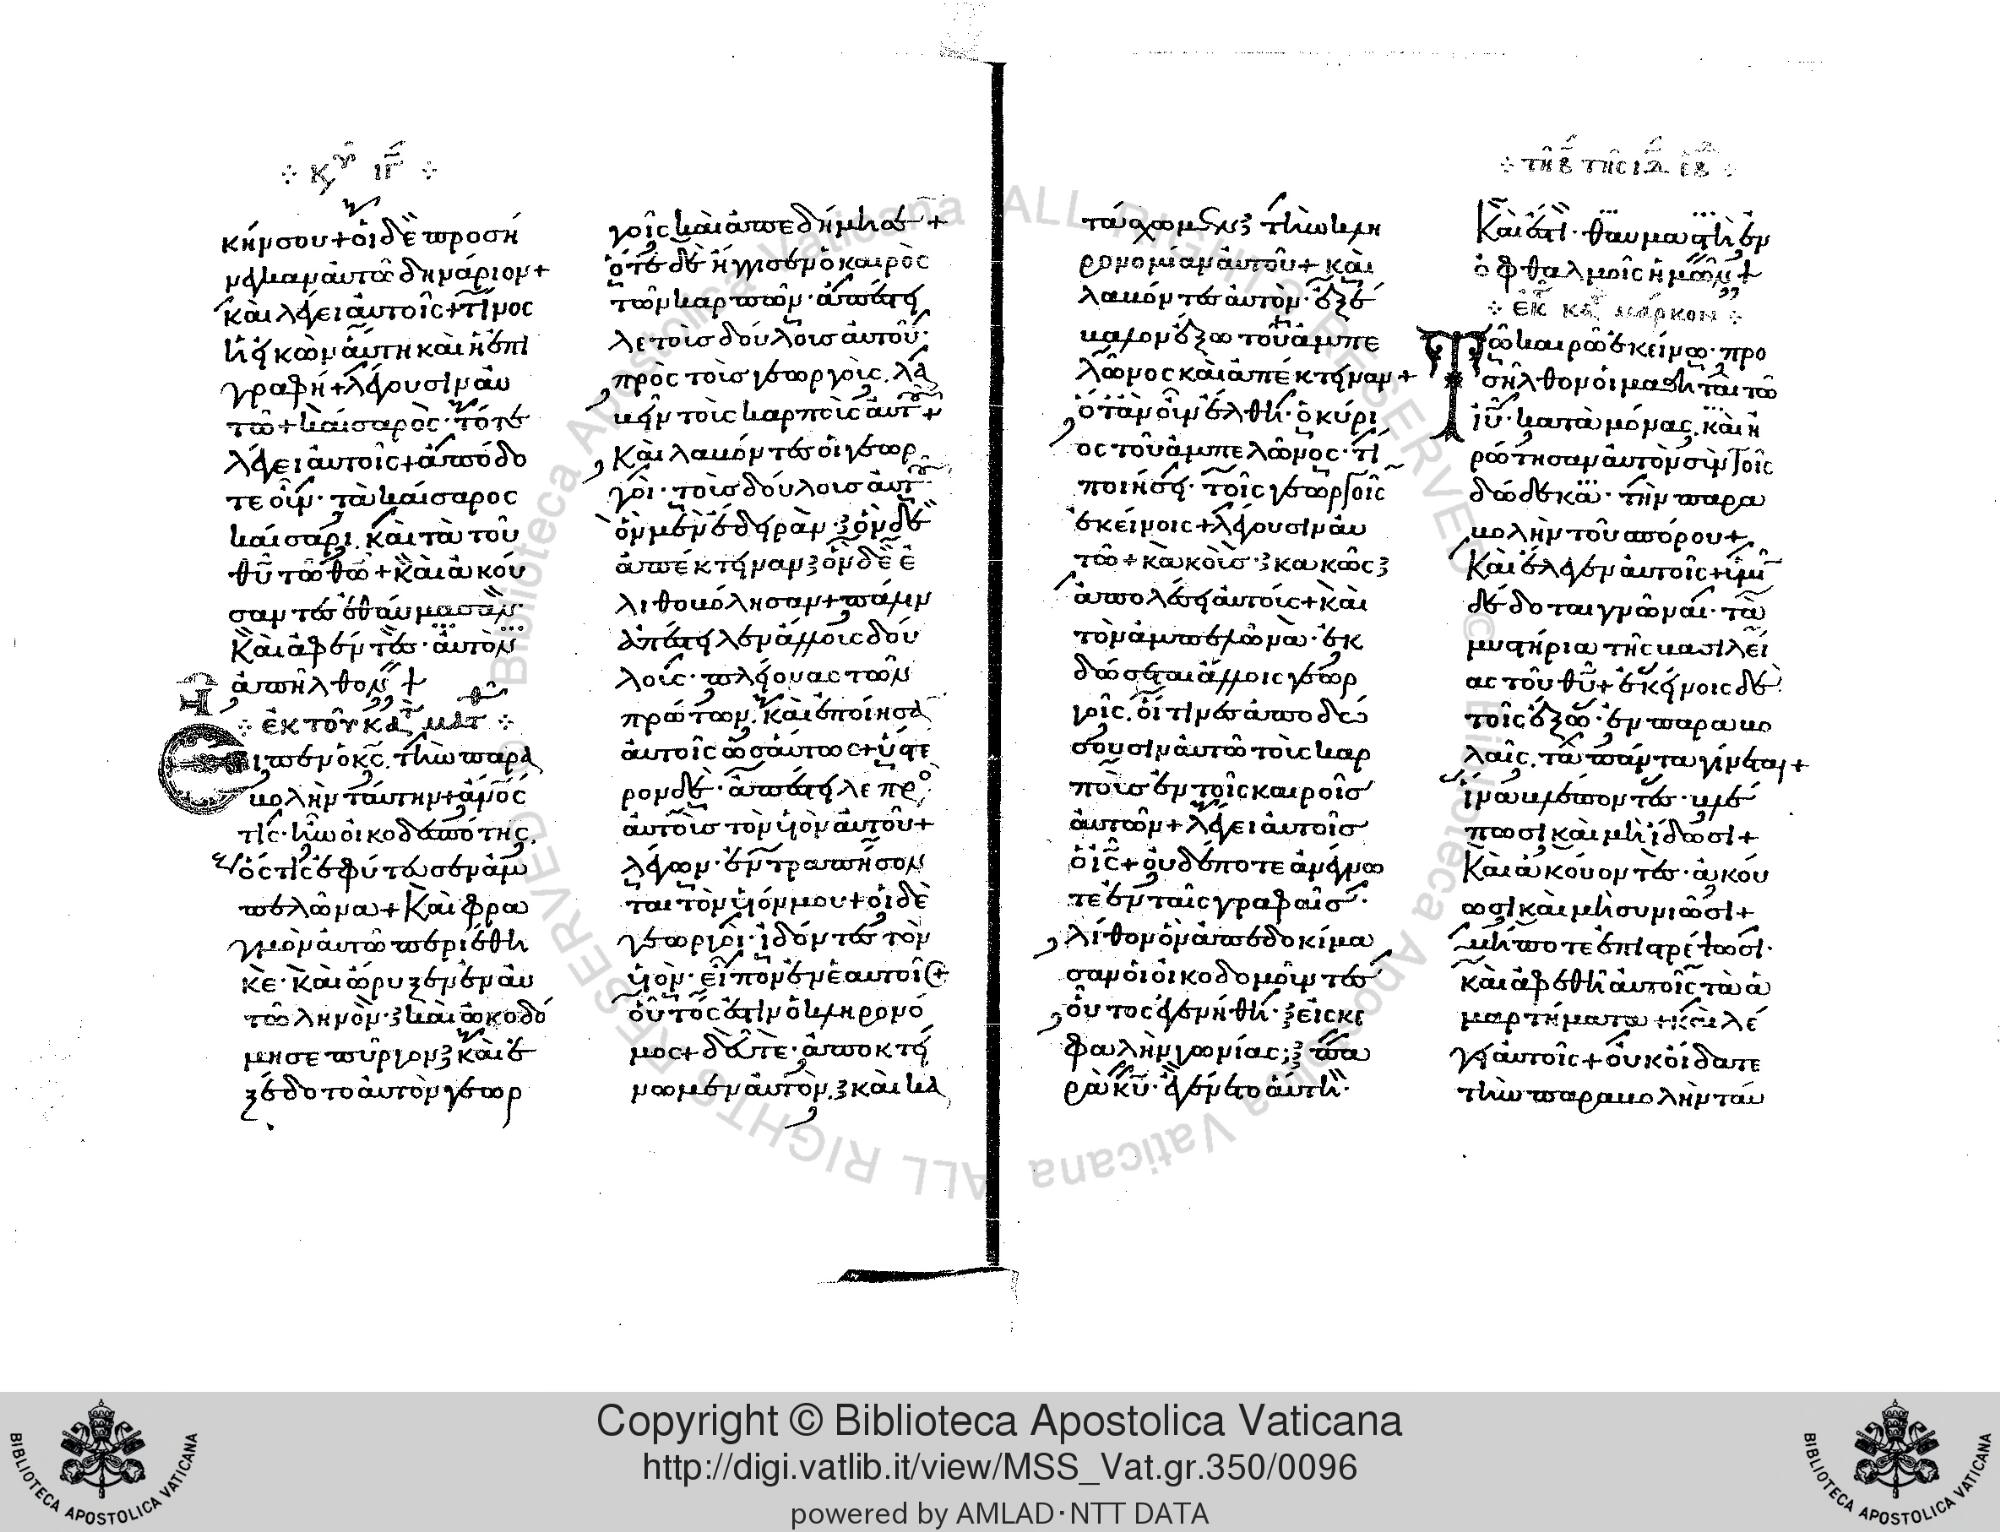 κήνσου + οἱ δὲ προσή
νεγκαν αὐτῶ δηνάριον +
καὶ λέγει αὐτοῖς + τίνος
ἡ εἰκὼν αὕτη καὶ ἡ ἐπι
γραφή + λέγουσιν αὐ
τῶ + καίσαρος · τότε
λέγει αὐτοῖς + ἀπόδο
τε οὖν · τὰ καίσαρος
καίσαρι . καὶ τὰ τοῦ
θῦ τῶ θῶ + Καὶ ἀκού
σαντες ἐθαύμασαν ·
Καὶ ἀφέντες · αὐτὸν
ἀπῆλθον +
ἐκ τοῦ κατ ματθ
Εἶπεν ὁ κς . τὴν παρα
βολὴν ταύτην + ἄνος
τίς · ἦν οἰκοδεσπότης .
ὅς τίς ἐφύτευσεν ἀμ
πελῶνα + Καὶ φρα
γμὸν αὐτῶ περιέθη
κε · Καὶ ὤρυξεν ἐν αὐ
τῶ ληνὸν · καὶ ὠκοδό
μησε πύργον καὶ ἐ
ξέδοτο αὐτὸν γεωρ
γοῖς καὶ ἀπεδήμησεν +
ὅτε δὲ ἤγγισεν ὁ καιρὸς
τῶν καρπῶν · ἀπέστει
λε τοὺς δούλους αὐτοῦ ·
πρὸς τοὺς γεωργοὺς . λα
βεῖν τοὺς καρποὺς αὐτοῦ +
Καὶ λαβόντες οἱ γεωρ
γοὶ · τοὺς δούλους αὐτοῦ
ὃν μὲν ἔδειραν · ὃν δὲ
ἀπέκτειναν ὃν δὲ ἐ
λιθοβόλησαν + πάλιν
ἀπέστειλεν ἄλλους δού
λους · πλείονας τῶν
πρώτων . καὶ ἐποίησαν
αὐτοῖς ὡσαύτως + ὕστε
ρον δὲ · ἀπέστειλε πρὸς
αὐτοὺς τὸν υἱὸν αὐτοῦ +
λέγων · ἐντραπήσον
ται τὸν υἱόν μου + οἱ δὲ
γεωργοὶ · ἰδόντες τὸν
υἱὸν · εἶπον ἐν ἑαυτοῖς +
οὗτός ἐστιν ὁ κληρονό
μος + δεῦτε · ἀποκτεί
νωμεν αὐτὸν . καὶ κα
τάσχωμεν τὴν κλη
ρονομίαν αὐτοῦ + καὶ
λαβόντες αὐτὸν · ἐξέ
βαλον ἔξω τοῦ ἀμπε
λῶνος καὶ ἀπέκτειναν +
ὅταν οὖν ἔλθη · ὁ κύρι
ος τοῦ ἀμπελῶνος · τί
ποιήσει · τοῖς γεωργοῖς
ἐκείνοις + λέγουσιν αὐ
τῶ + κακοὺς · κακῶς
ἀπολέσει αὐτούς + καὶ
τὸν ἀμπελῶνα · ἐκ
δώσεται ἄλλοις γεωρ
γοῖς . οἵτινες ἀποδώ
σουσιν αὐτῶ τοὺς καρ
ποὺς ἐν τοῖς καιροῖς
αὐτῶν + λέγει αὐτοῖς
ὁ ις + οὐδέποτε ἀνέγνω
τε ἐν ταῖς γραφαῖς ·
λίθον ὃν ἀπεδοκίμα
σαν οἱ οἰκοδομοῦντες
οὗτος ἐγενήθη · εἰς κε
φαλὴν γωνίας ; πα
ρὰ κυ · ἐγένετο αὕτη ·
Καὶ ἔστι · θαυμαστὴ ἐν
ὀφθαλμοῖς ἡμῶν +
ἐκ κατ μάρκον
Τῶ καιρῶ ἐκείνω · προ
σῆλθον οἱ μαθηταὶ τῶ
ιυ · κατὰ μόνας . καὶ ἠ
ρώτησαν αὐτὸν σὺν τοῖς
δώδεκα · τὴν παρα
βολὴν τοῦ σπόρου +
Καὶ ἔλεγεν αὐτοῖς + ὑμῖν
δέδοται γνῶναι · τὰ
μυστήρια τῆς βασιλεί
ας τοῦ θυ + ἐκείνοις δὲ
τοῖς ἔξω · ἐν παραβο
λαῖς . τὰ πάντα γίνεται +
ἵνα βλέποντες · βλέ
πωσι καὶ μὴ ἴδωσι +
Καὶ ἀκούοντες · ἀκού
ωσι καὶ μὴ συνιῶσι +
μήποτε ἐπιστρέψωσι ·
καὶ ἀφεθῆ αὐτοῖς τὰ ἁ
μαρτήματα + καὶ λέ
γει αὐτοῖς + οὐκ οἴδατε
τὴν παραβολὴν ταύ
Copyright © Biblioteca Apostolica Vaticana
http://digi.vatlib.it/view/MSS_Vat.gr.350/0096
powered by AMLAD·NTT DATA
BIBLIOTECA APOSTOLICA VATICANA
BIBLIOTECA APOSTOLICA VATICANA